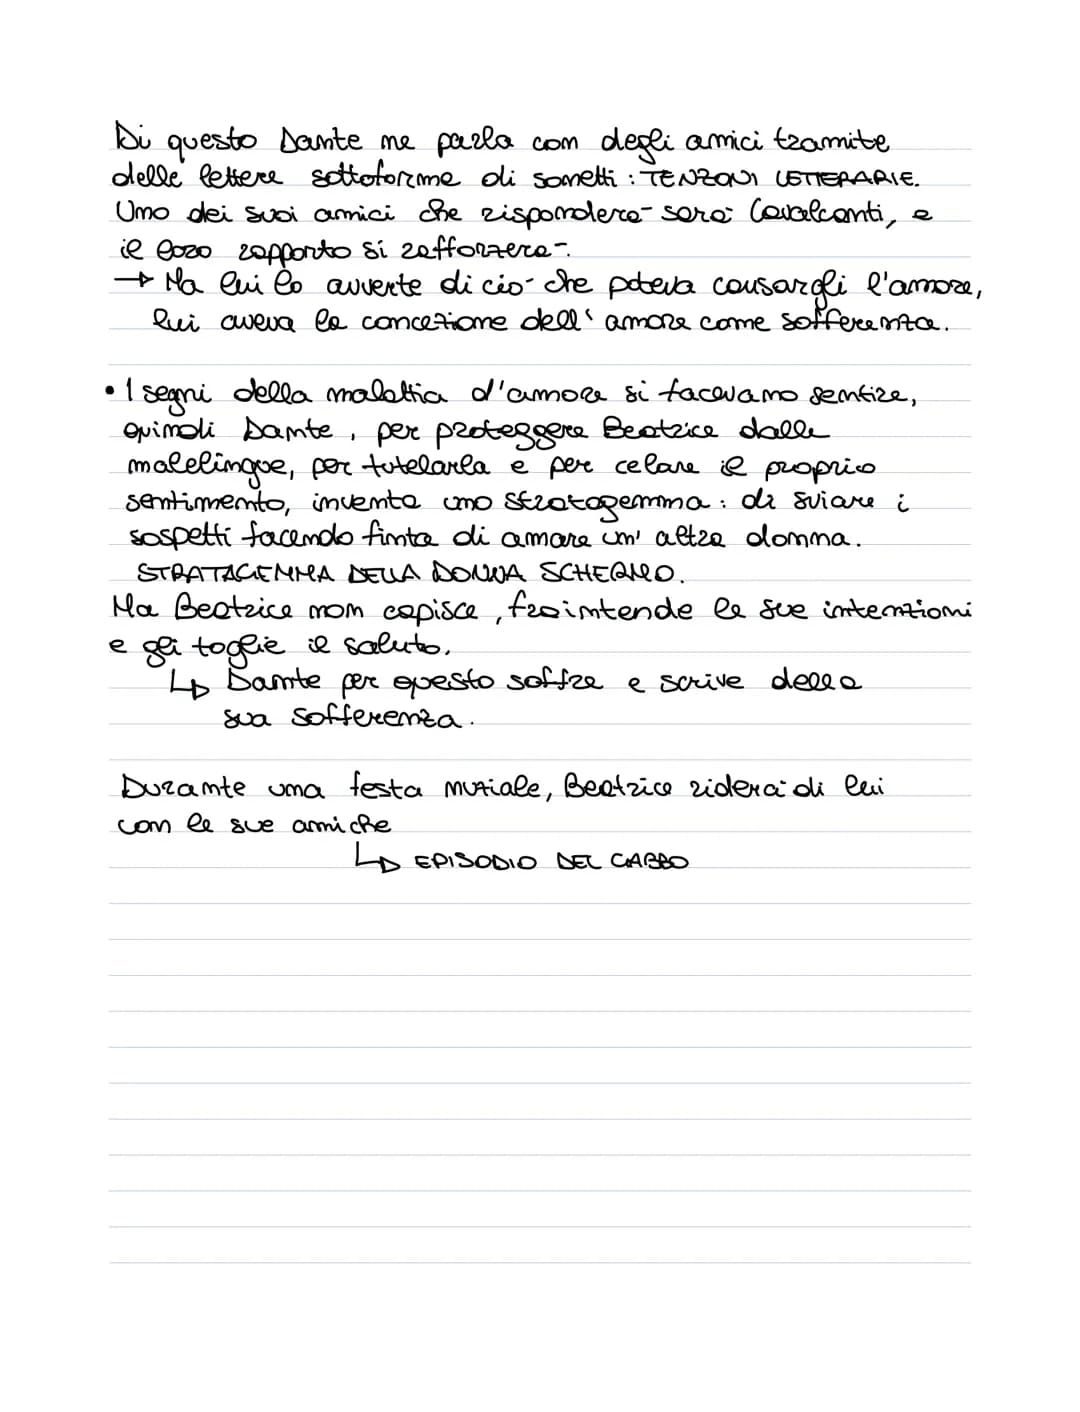 Di questo Dante ne parla con degli amici tramite
delle lettere sottoforma di sonetti: TENZONI LETTERARIE.
Uno dei suoi amici che risponderà sarà Cavalcanti, e
il loro rapporto si rafforzerà.
→ Ma lui lo avverte di ciò che poteva causargli l'amore,
lui aveva la concezione dell'amore come sofferenza.
• I segni della malattia d'amore si facevano sentire,
quindi Dante, per proteggere Beatrice dalle
malelingue, per tutelarla e per celare il proprio
sentimento, inventa uno stratagemma: di sviare i
sospetti facendo finta di amare un'altra donna.
STRATAGEMMA DELLA DONNA SCHERMO.
Ma Beatrice non capisce, fraintende le sue intenzioni
e gli toglie il saluto.
↳ Dante per questo soffre e scrive della
sua sofferenza.
Durante una festa nuziale, Beatrice riderà di lui
con le sue amiche
↳ EPISODIO DEL GABBO